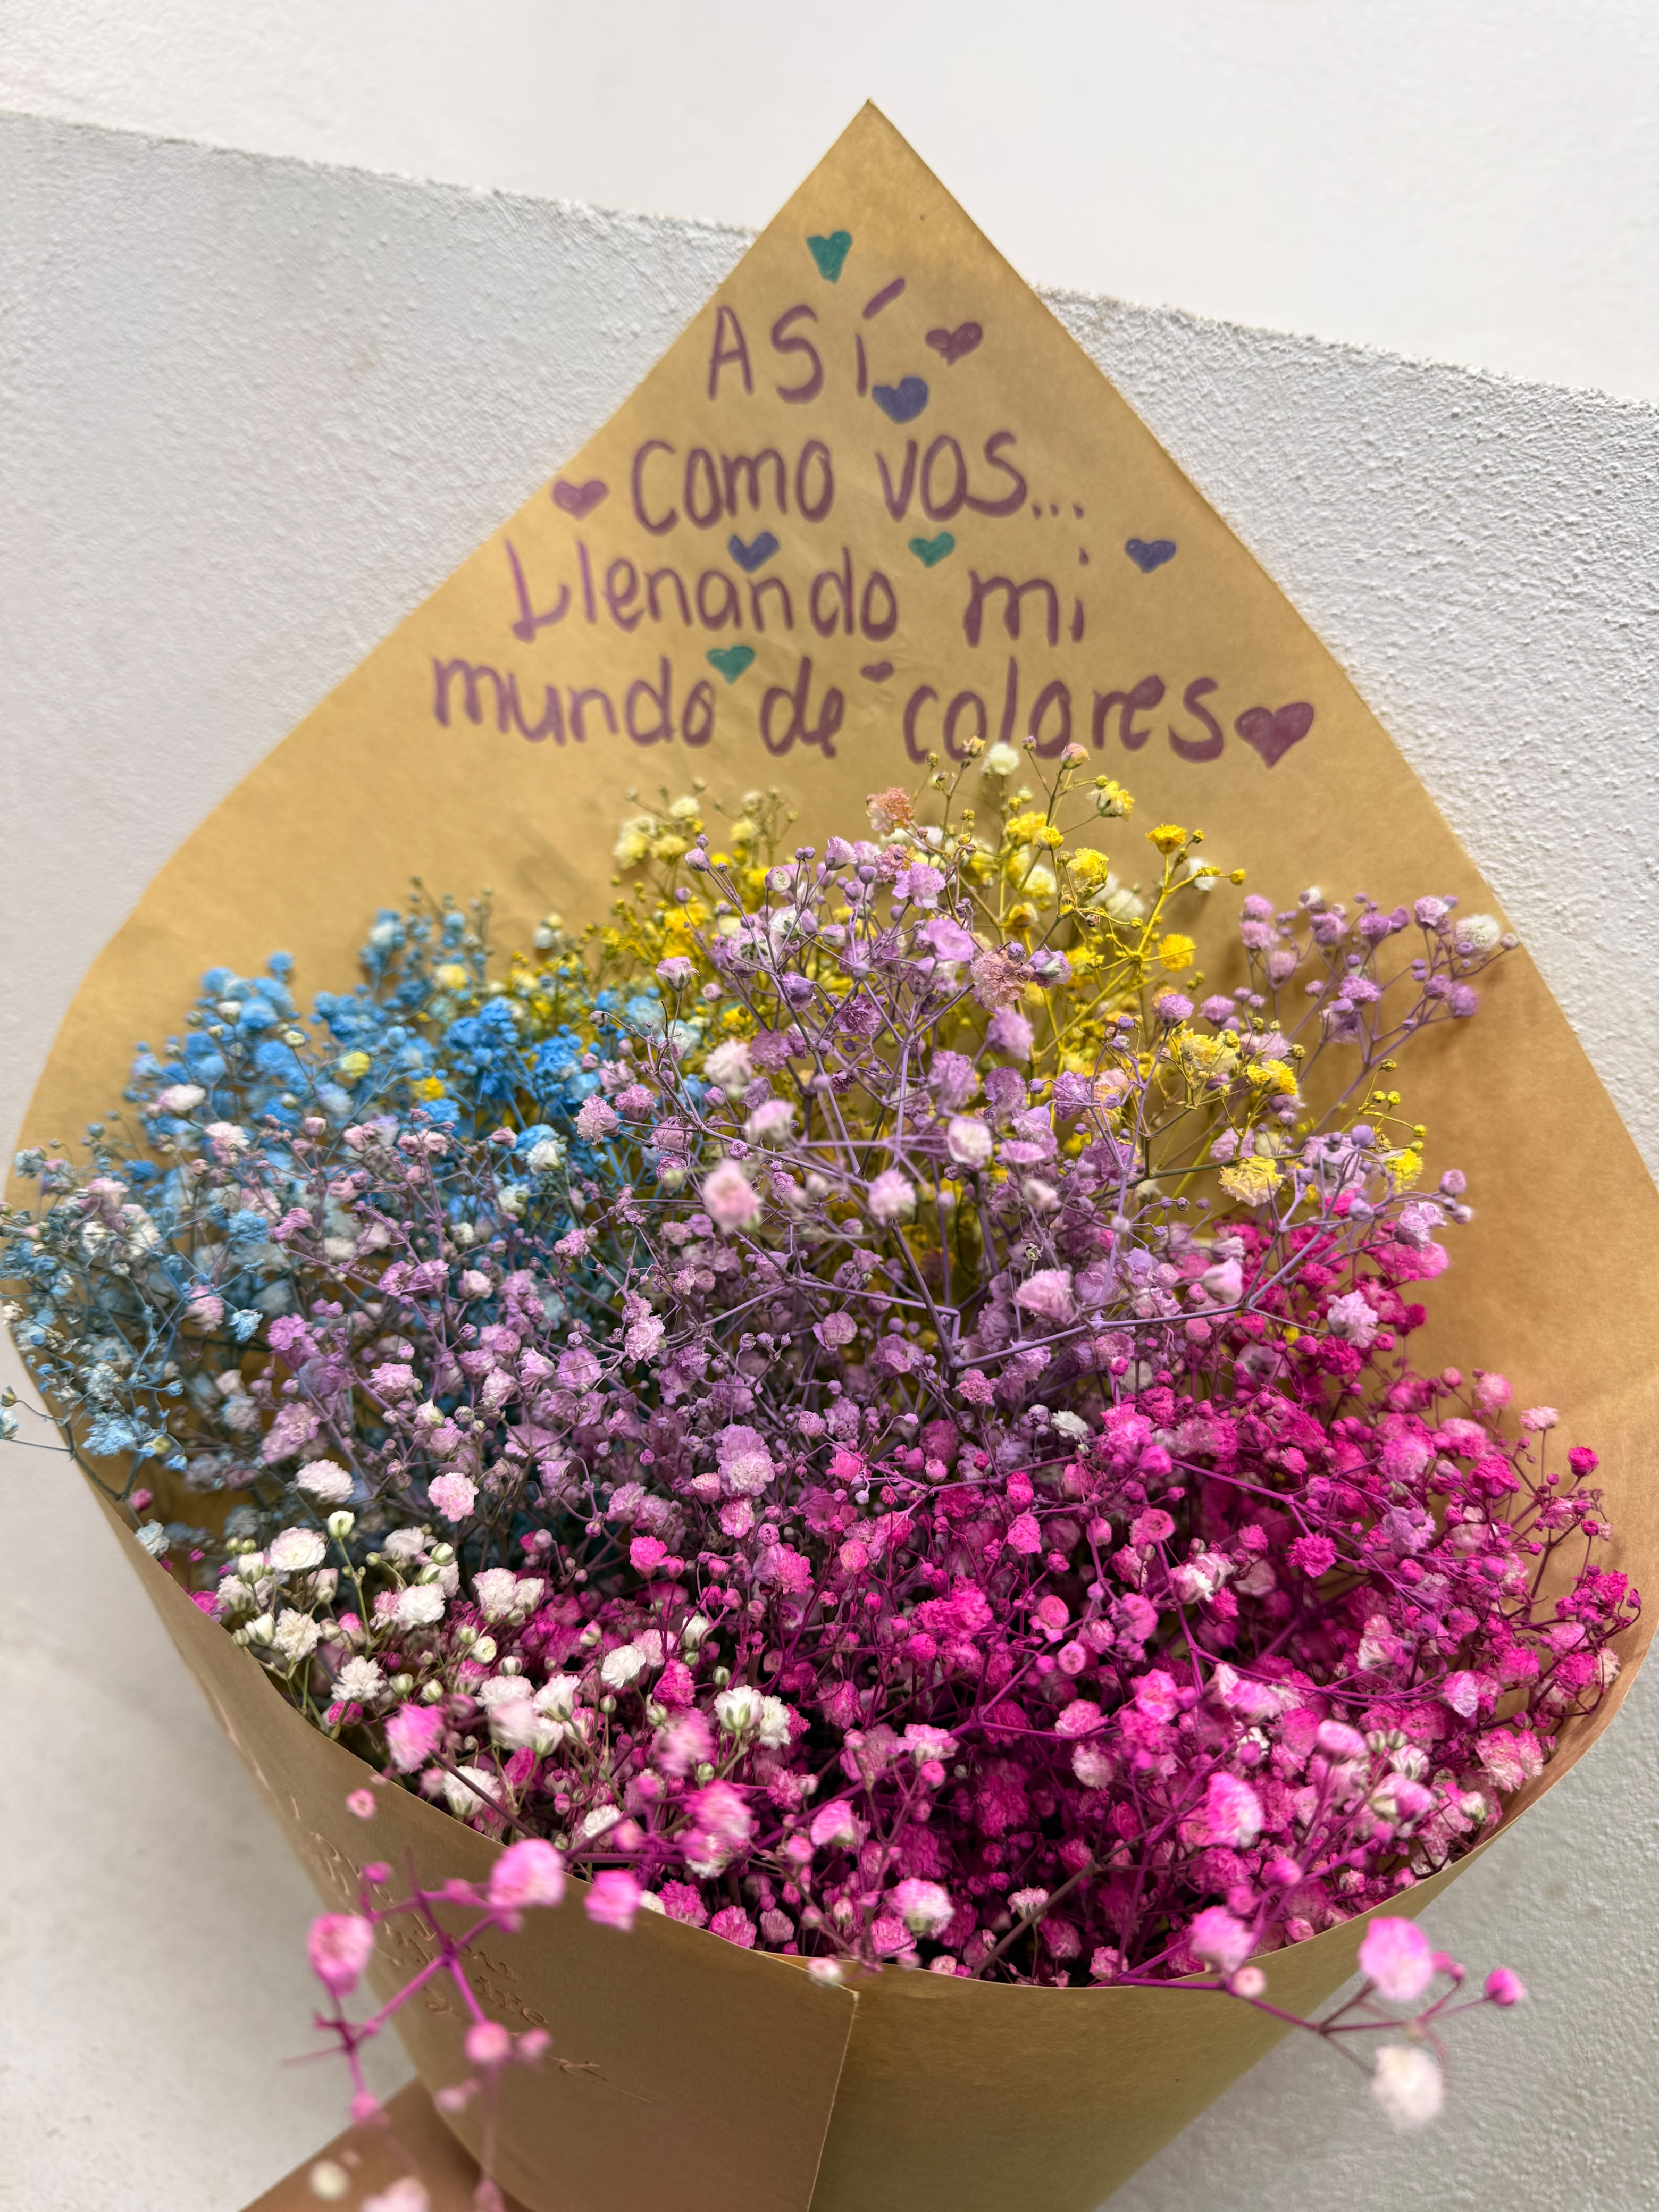 Así
como vos...
Llenando mi
mundo de colores